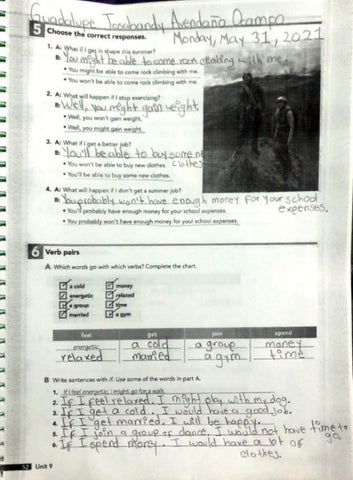 Guadalupe Josabandy Avendaña Ocampo
5 Choose the correct responses.
Monday, May 31, 2021
1. A: What if I get in shape this summer?
B: You might be able to come rock climbing with me.
• You might be able to come rock climbing with me.
• You won't be able to come rock climbing with me.
2. A: What will happen if I stop exercising?
B: Well, you might gain weight.
• Well, you won't gain weight.
• Well, you might gain weight.
3. A: What if I get a better job?
B: You'll be able to buy some new
clothes.
• You won't be able to buy new clothes.
• You'll be able to buy some new clothes.
4. A: What will happen if I don't get a summer job?
B: You probably won't have enough money for your school
expenses.
• You'll probably have enough money for your school expenses.
• You probably won't have enough money for your school expenses.
6 Verb pairs
A Which words go with which verbs? Complete the chart.
a cold money
energetic relaxed
a group time
married a gym
feel get join spend
energetic a cold a group money
relaxed married a gym time
B Write sentences with if. Use some of the words in part A.
1. If I feel energetic, I might go for a walk.
2. If I feel relaxed. I might play with my dog.
3. If I get a cold. I would have a good job.
4. If I get married. I will be happy.
5. If I join a group of dance. I would not have time to
go.
6. If I spend money. I would have a lot of
clothes.
52 Unit 9